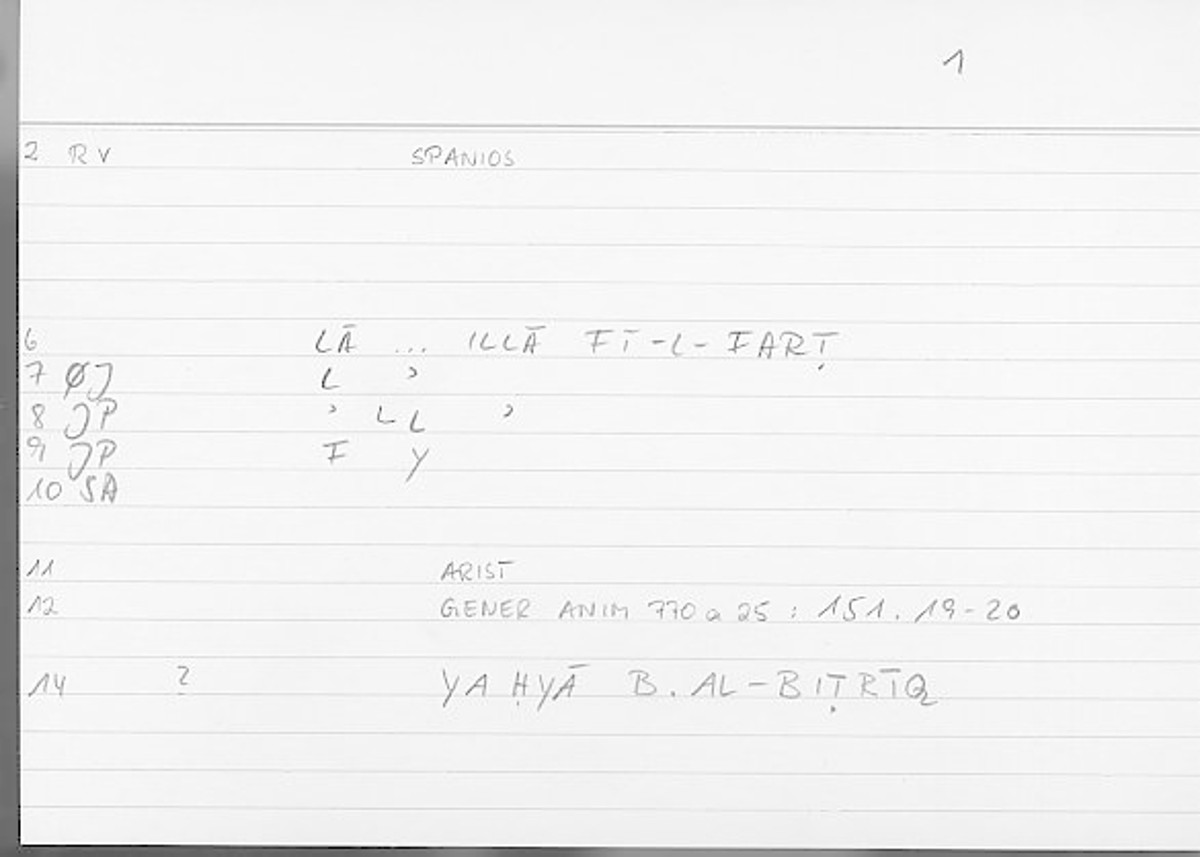 1
2 RV SPANIOS
6 LĀ ... ILLĀ FĪ-L-FARṬ
7 ØJ L ʾ
8 JP ʾ L L ʾ
9 JP F Y
10 SA
11 ARIST
12 GENER ANIM 770 a 25 : 151. 19-20
14 ? YAḤYĀ B. AL-BIṬRĪQ